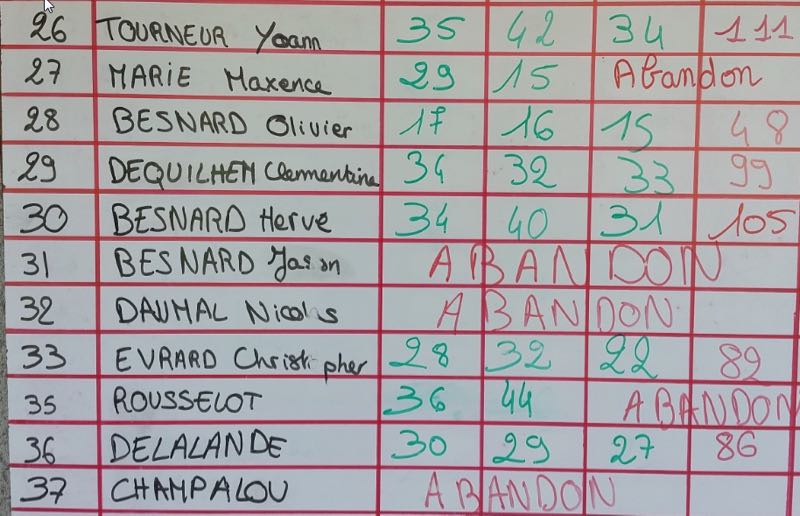 26 TOURNEUR Yoann 35 42 34 111
27 MARIE Maxence 29 15 Abandon
28 BESNARD Olivier 17 16 15 48
29 DEQUILHEM Clermentine 34 32 33 99
30 BESNARD Hervé 34 40 31 105
31 BESNARD Jason ABANDON
32 DAUMAL Nicolas ABANDON
33 EVRARD Christopher 28 32 22 82
35 ROUSSELOT 36 44 ABANDON
36 DELALANDE 30 29 27 86
37 CHAMPALOU ABANDON